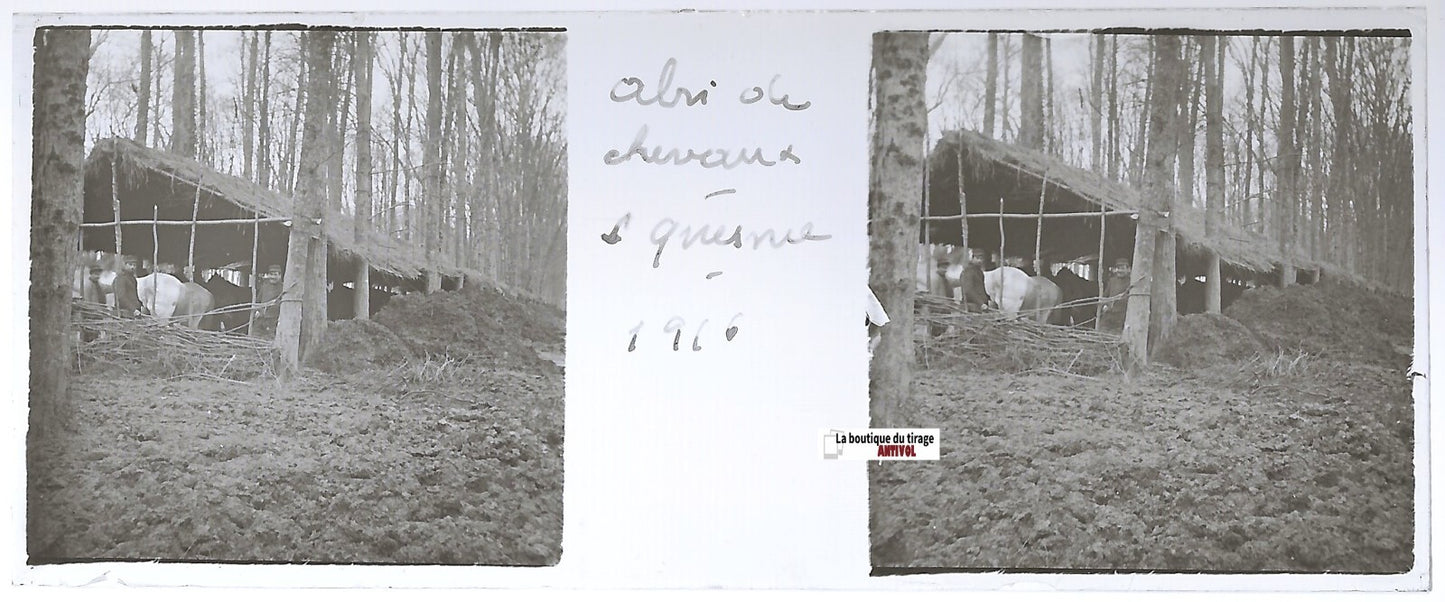 abri de
chevaux
-
-
191
La boutique du tirage
ANTIVOL